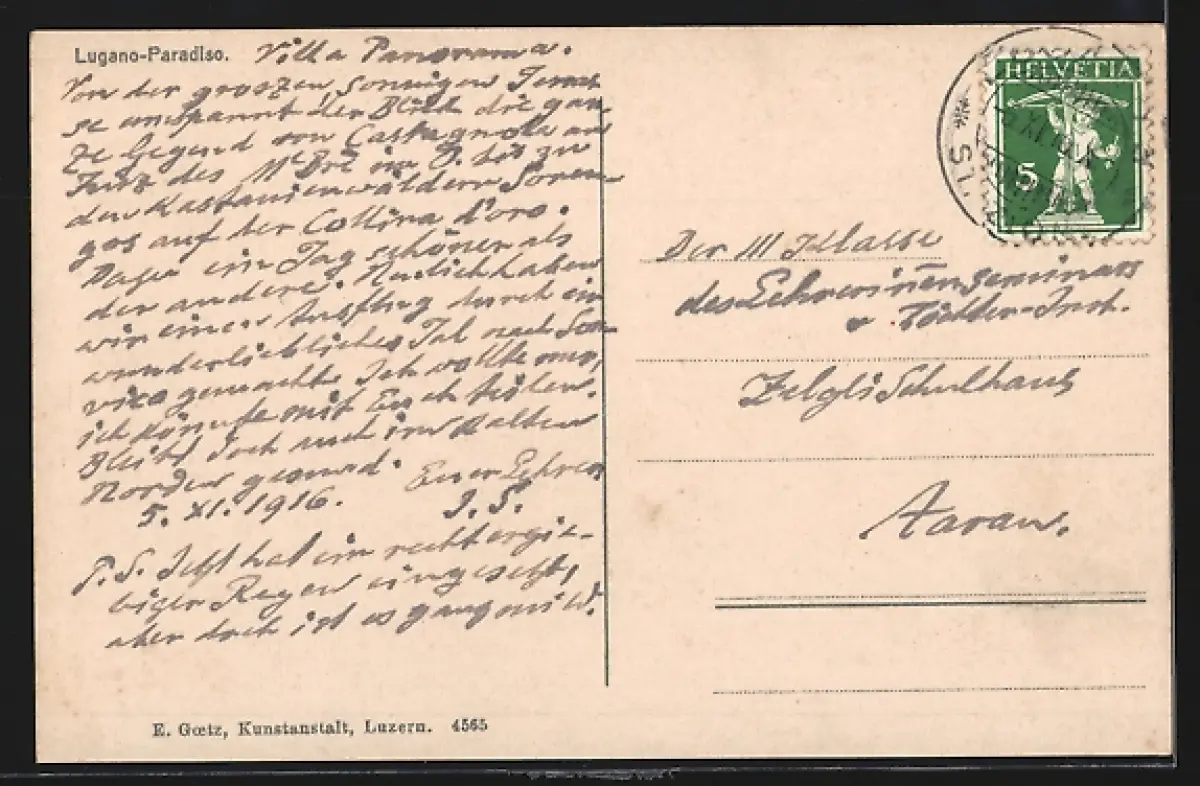 Lugano-Paradiso. Villa Panorama.
Von der groszen sonnigen Terras
se umspannt der Blick die gan
ze Gegend von Castagnola am
Fusz des Mt Brè im O. bis zu
den Kastanienwäldern Soren
gos auf der Collina d'oro.
Dazu ein Tag schöner als
der andere. Neulich haben
wir einen Ausflug durch ein
wunderliebliches Tal nach Son
vico gemacht. Ich wollte nur,
ich könnte mit Euch teilen.
Bleibt doch auch im kalten
Norden gesund. Euer Lehrer
5. XI. 1916. J. S.
P. S. Jetzt hat ein recht ergie-
biger Regen eingesetzt,
aber doch ist es ganz mild.
E. Gœtz, Kunstanstalt, Luzern. 4565
HELVETIA
5
Der III Klasse
des Lehrerinnenseminars
& Töchter-Inst.
Zelgli Schulhaus
Aarau.